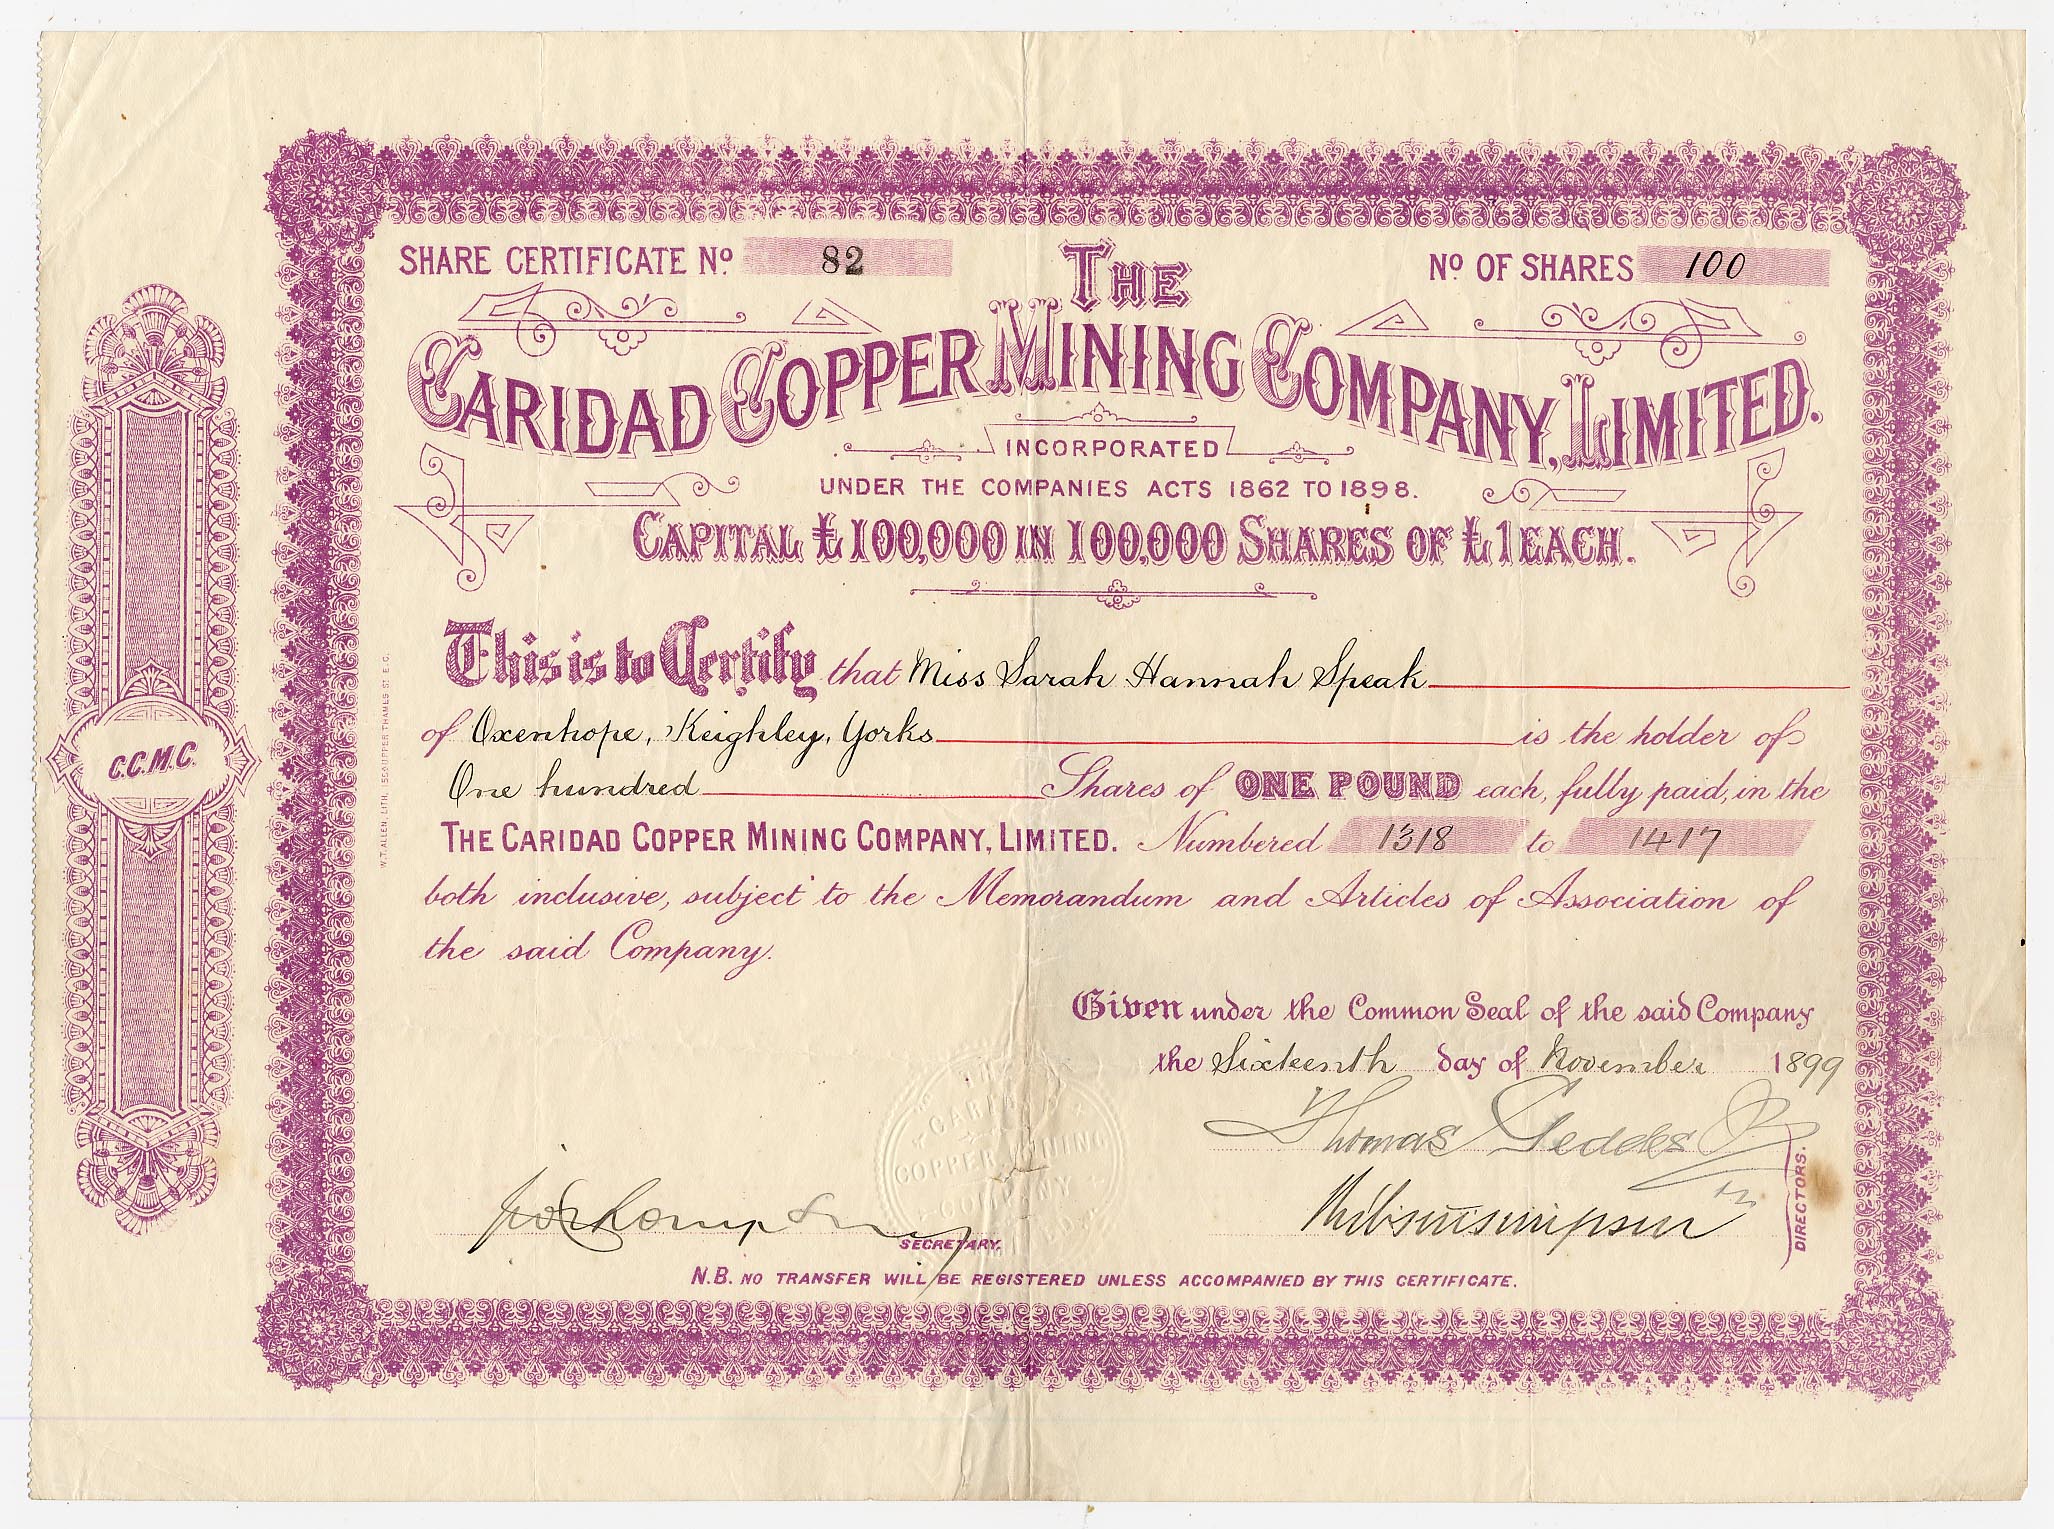 SHARE CERTIFICATE Nº 82
Nº OF SHARES 100
THE
CARIDAD COPPER MINING COMPANY, LIMITED.
INCORPORATED
UNDER THE COMPANIES ACTS 1862 TO 1898.
CAPITAL £100,000 IN 100,000 SHARES OF £1 EACH.
This is to Certify that Miss Sarah Hannah Speak
of Oxenhope, Keighley, Yorks is the holder of
One hundred Shares of ONE POUND each, fully paid, in the
THE CARIDAD COPPER MINING COMPANY, LIMITED. Numbered 1318 to 1417
both inclusive, subject to the Memorandum and Articles of Association of
the said Company.
Given under the Common Seal of the said Company
the Sixteenth day of November 1899
Thomas Geddes
DIRECTORS.
SECRETARY.
N.B. NO TRANSFER WILL BE REGISTERED UNLESS ACCOMPANIED BY THIS CERTIFICATE.
C.C.M.C.
W.T. ALLEN, LITH.
THAMES ST. E.C.
COPPER MINING
COMPANY